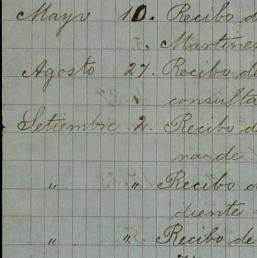 Mayo 10. Recibo d
Martines
Agosto 27. Recibo de
consulta
Setiembre 2. Recibo d
na de
" " Recibo d
diente
" " Recibo de